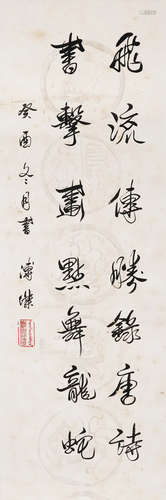 飛流傳勝錄唐詩
書擊畫點舞龍蛇
癸酉冬月書 溥傑